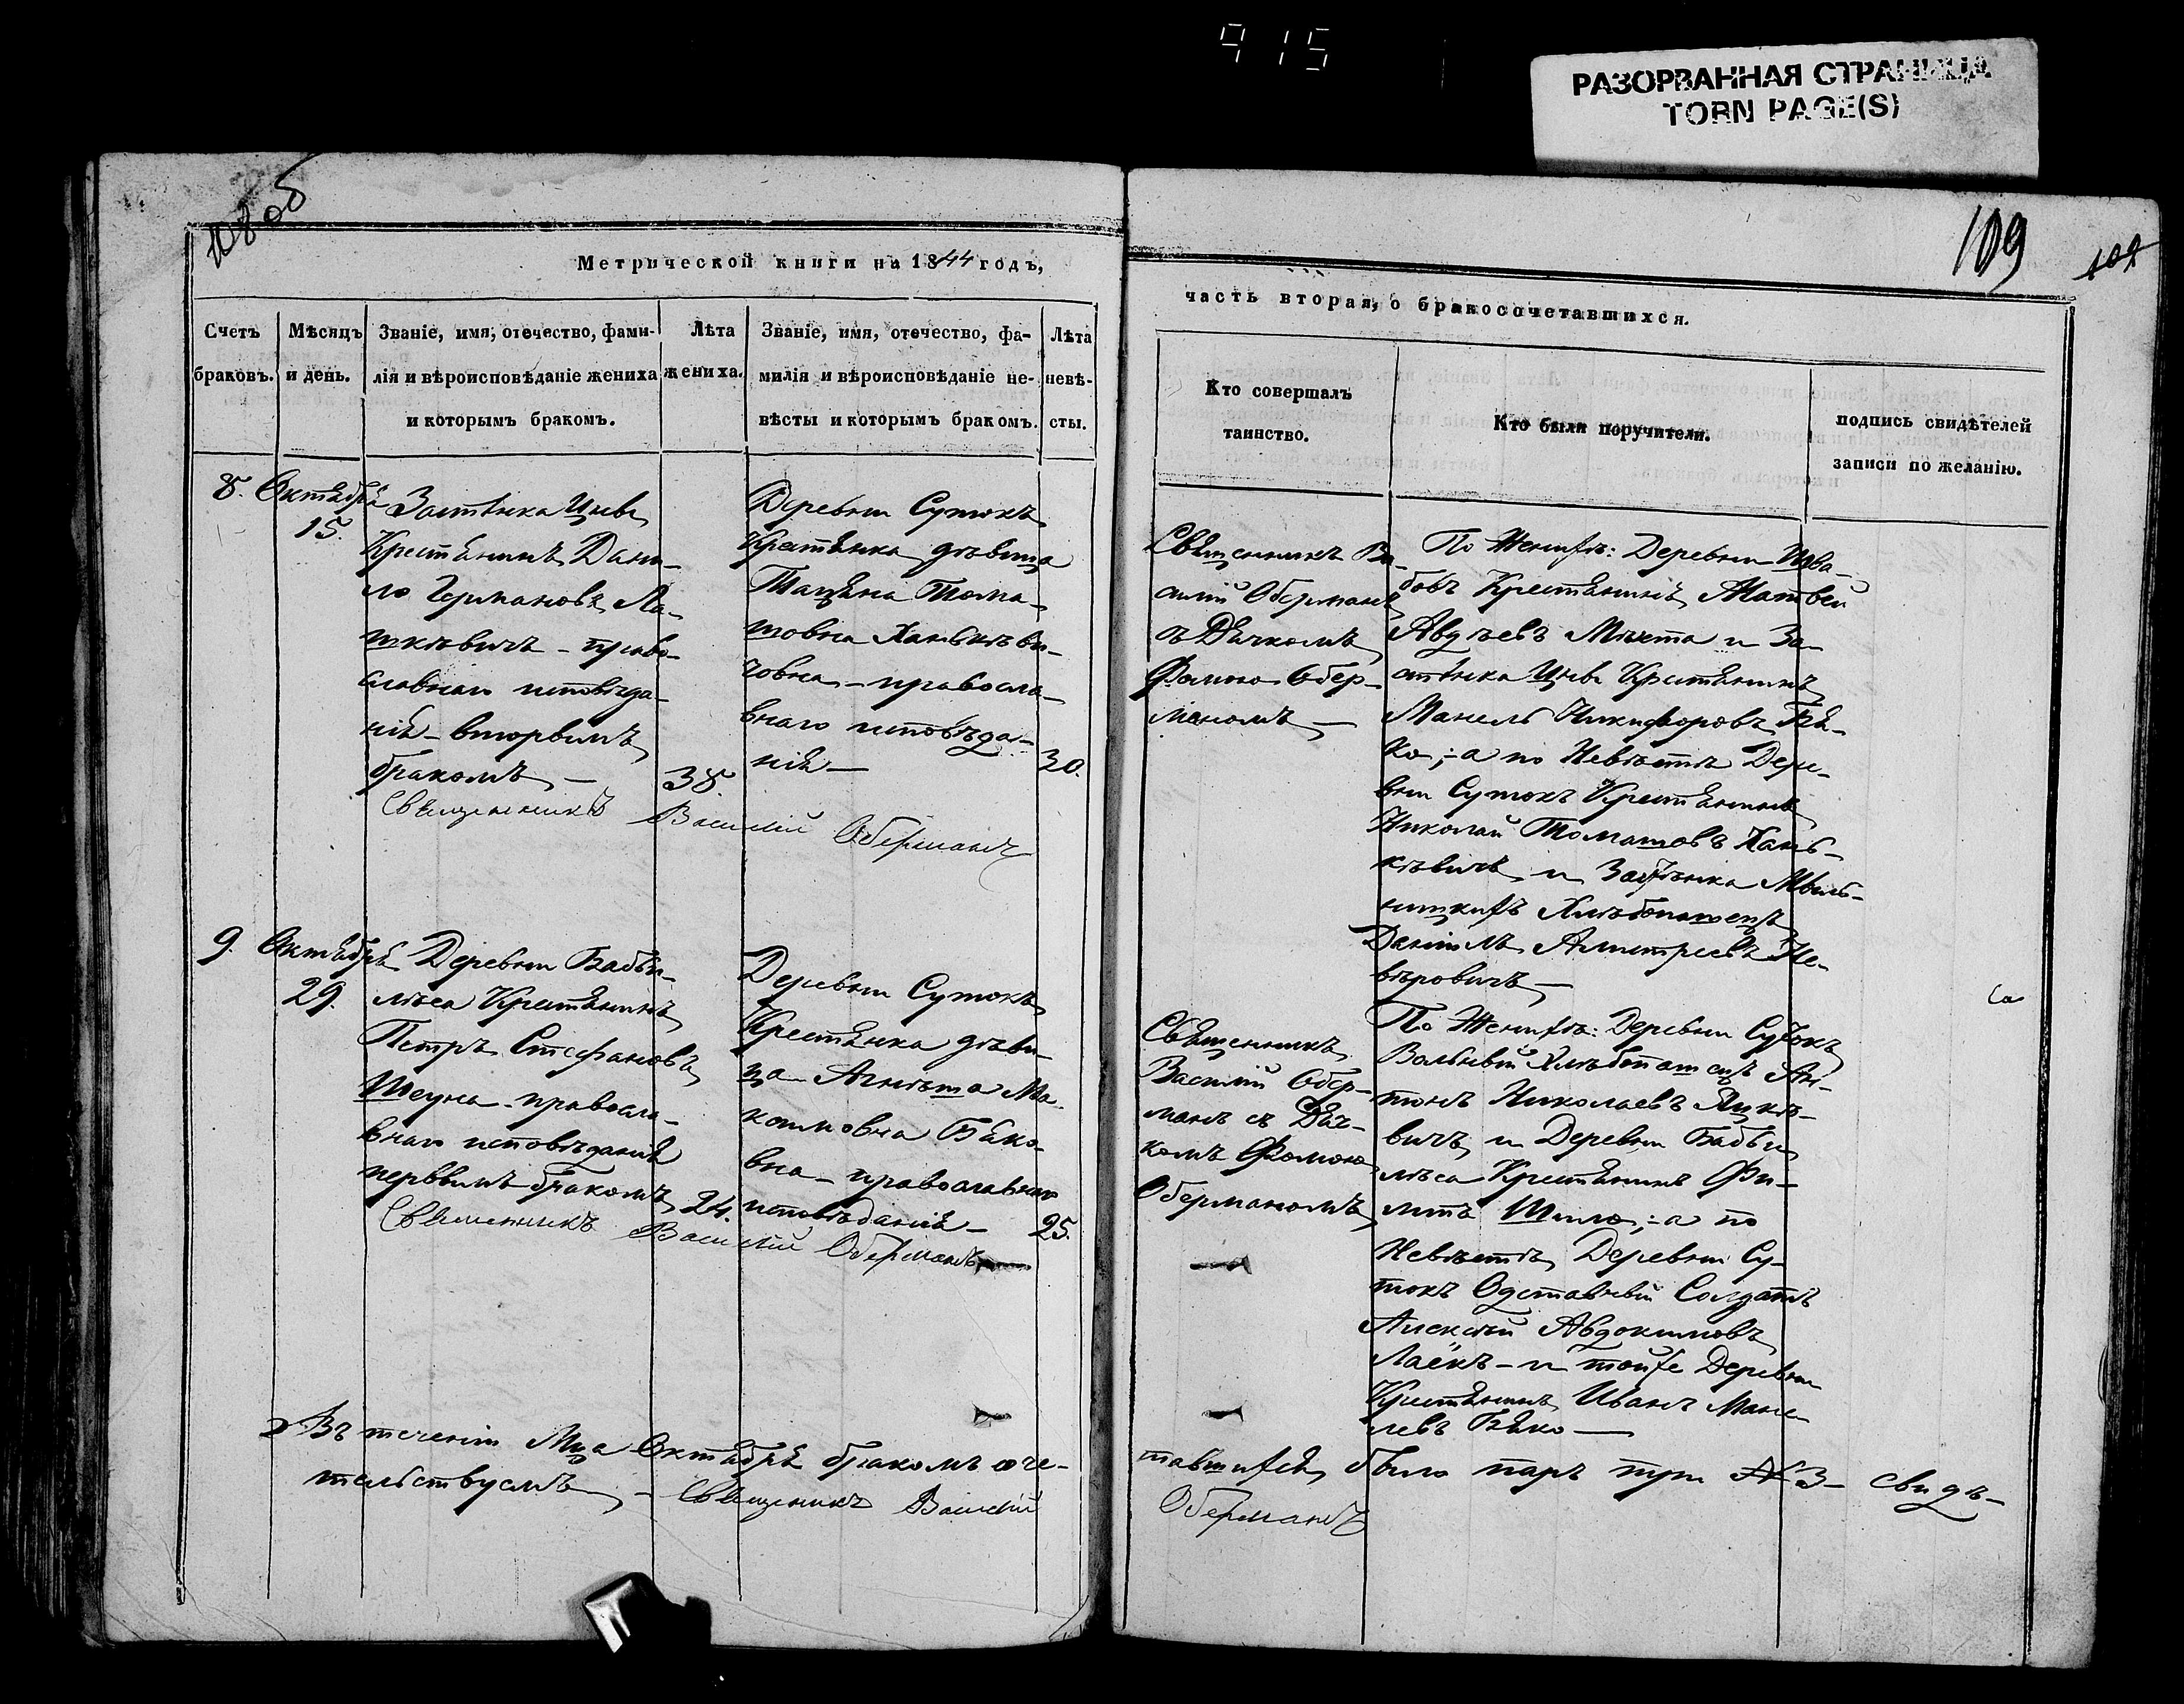 915
РАЗОРВАННАЯ СТРАНИЦА
TORN PAGE(S)
108 об
Метрической книги на 1844 годъ,
Счетъ браковъ.
Мѣсяцъ и день.
Званіе, имя, отечество, фами-
лія и вѣроисповѣданіе жениха
и которымъ бракомъ.
Лѣта
жениха.
Званіе, имя, отечество, фа-
милія и вѣроисповѣданіе не-
вѣсты и которымъ бракомъ.
Лѣта
невѣ-
сты.
8.
Октября
15.
Застѣнка Цны
Крестьянинъ Дани-
ло Германовъ Ла-
шкѣвичъ - право-
славнаго исповѣда-
нія - вторымъ
бракомъ —
38.
Деревни Сутокъ
Крестьянка дѣвица
Татьяна Тома-
шовна Ханькѣви-
човна - правосла-
внаго исповѣда-
нія —
30.
Священникъ Василій Оберманъ
9.
Октября
29.
Деревни Бабьи-
лѣса Крестьянинъ
Петръ Стефановъ
Шеуна - правосла-
внаго исповѣданія
первымъ бракомъ
24.
Деревни Сутокъ
Крестьянка дѣви-
ца Агнѣта Ма-
ковна Бяко-
вна - православнаго
исповѣданія —
25.
Священникъ Василій Оберманъ
Въ теченіи Мца Октября бракомъ соче-
тельствуемъ - Священникъ Василій
109
часть вторая, о бракосочетавшихся.
Кто совершалъ
таинство.
Кто были поручители.
подпись свидѣтелей
записи по желанію.
Священникъ Ва-
силій Оберманъ
съ Дьячкомъ
Фомою Обер-
маномъ —
По Женихѣ: Деревни
Крестьянинъ Матвей
Авдѣевъ и За-
стѣнка Цны Крестьянинъ
Манель Никифоровъ Бя-
ко; - а по Невѣстѣ Дере-
вни Сутокъ Крестьянинъ
Николай Томашовъ Хань-
кѣвичъ и Застѣнка
Хлѣбопашецъ
Даніилъ Дмитреевъ Не-
вѣровичъ —
Священникъ
Василій Обер-
манъ съ Дьяч-
комъ Фомою
Оберманомъ
По Женихѣ: Деревни Сутокъ
Вольный Хлѣбопашецъ Ан-
тонъ Николаевъ Яцкѣ-
вичъ и Деревни Бабьи
лѣса Крестьянинъ Фи-
липъ Шило; - а по
Невѣстѣ Деревни Су-
токъ Одставный Солдатъ
Алексѣй Авдокимовъ
Лаёкъ - и тойже Деревни
Крестьянинъ Иванъ Мане-
левъ Бяко —
тавшихся было паръ три № 3 - свидѣ-
Оберманъ